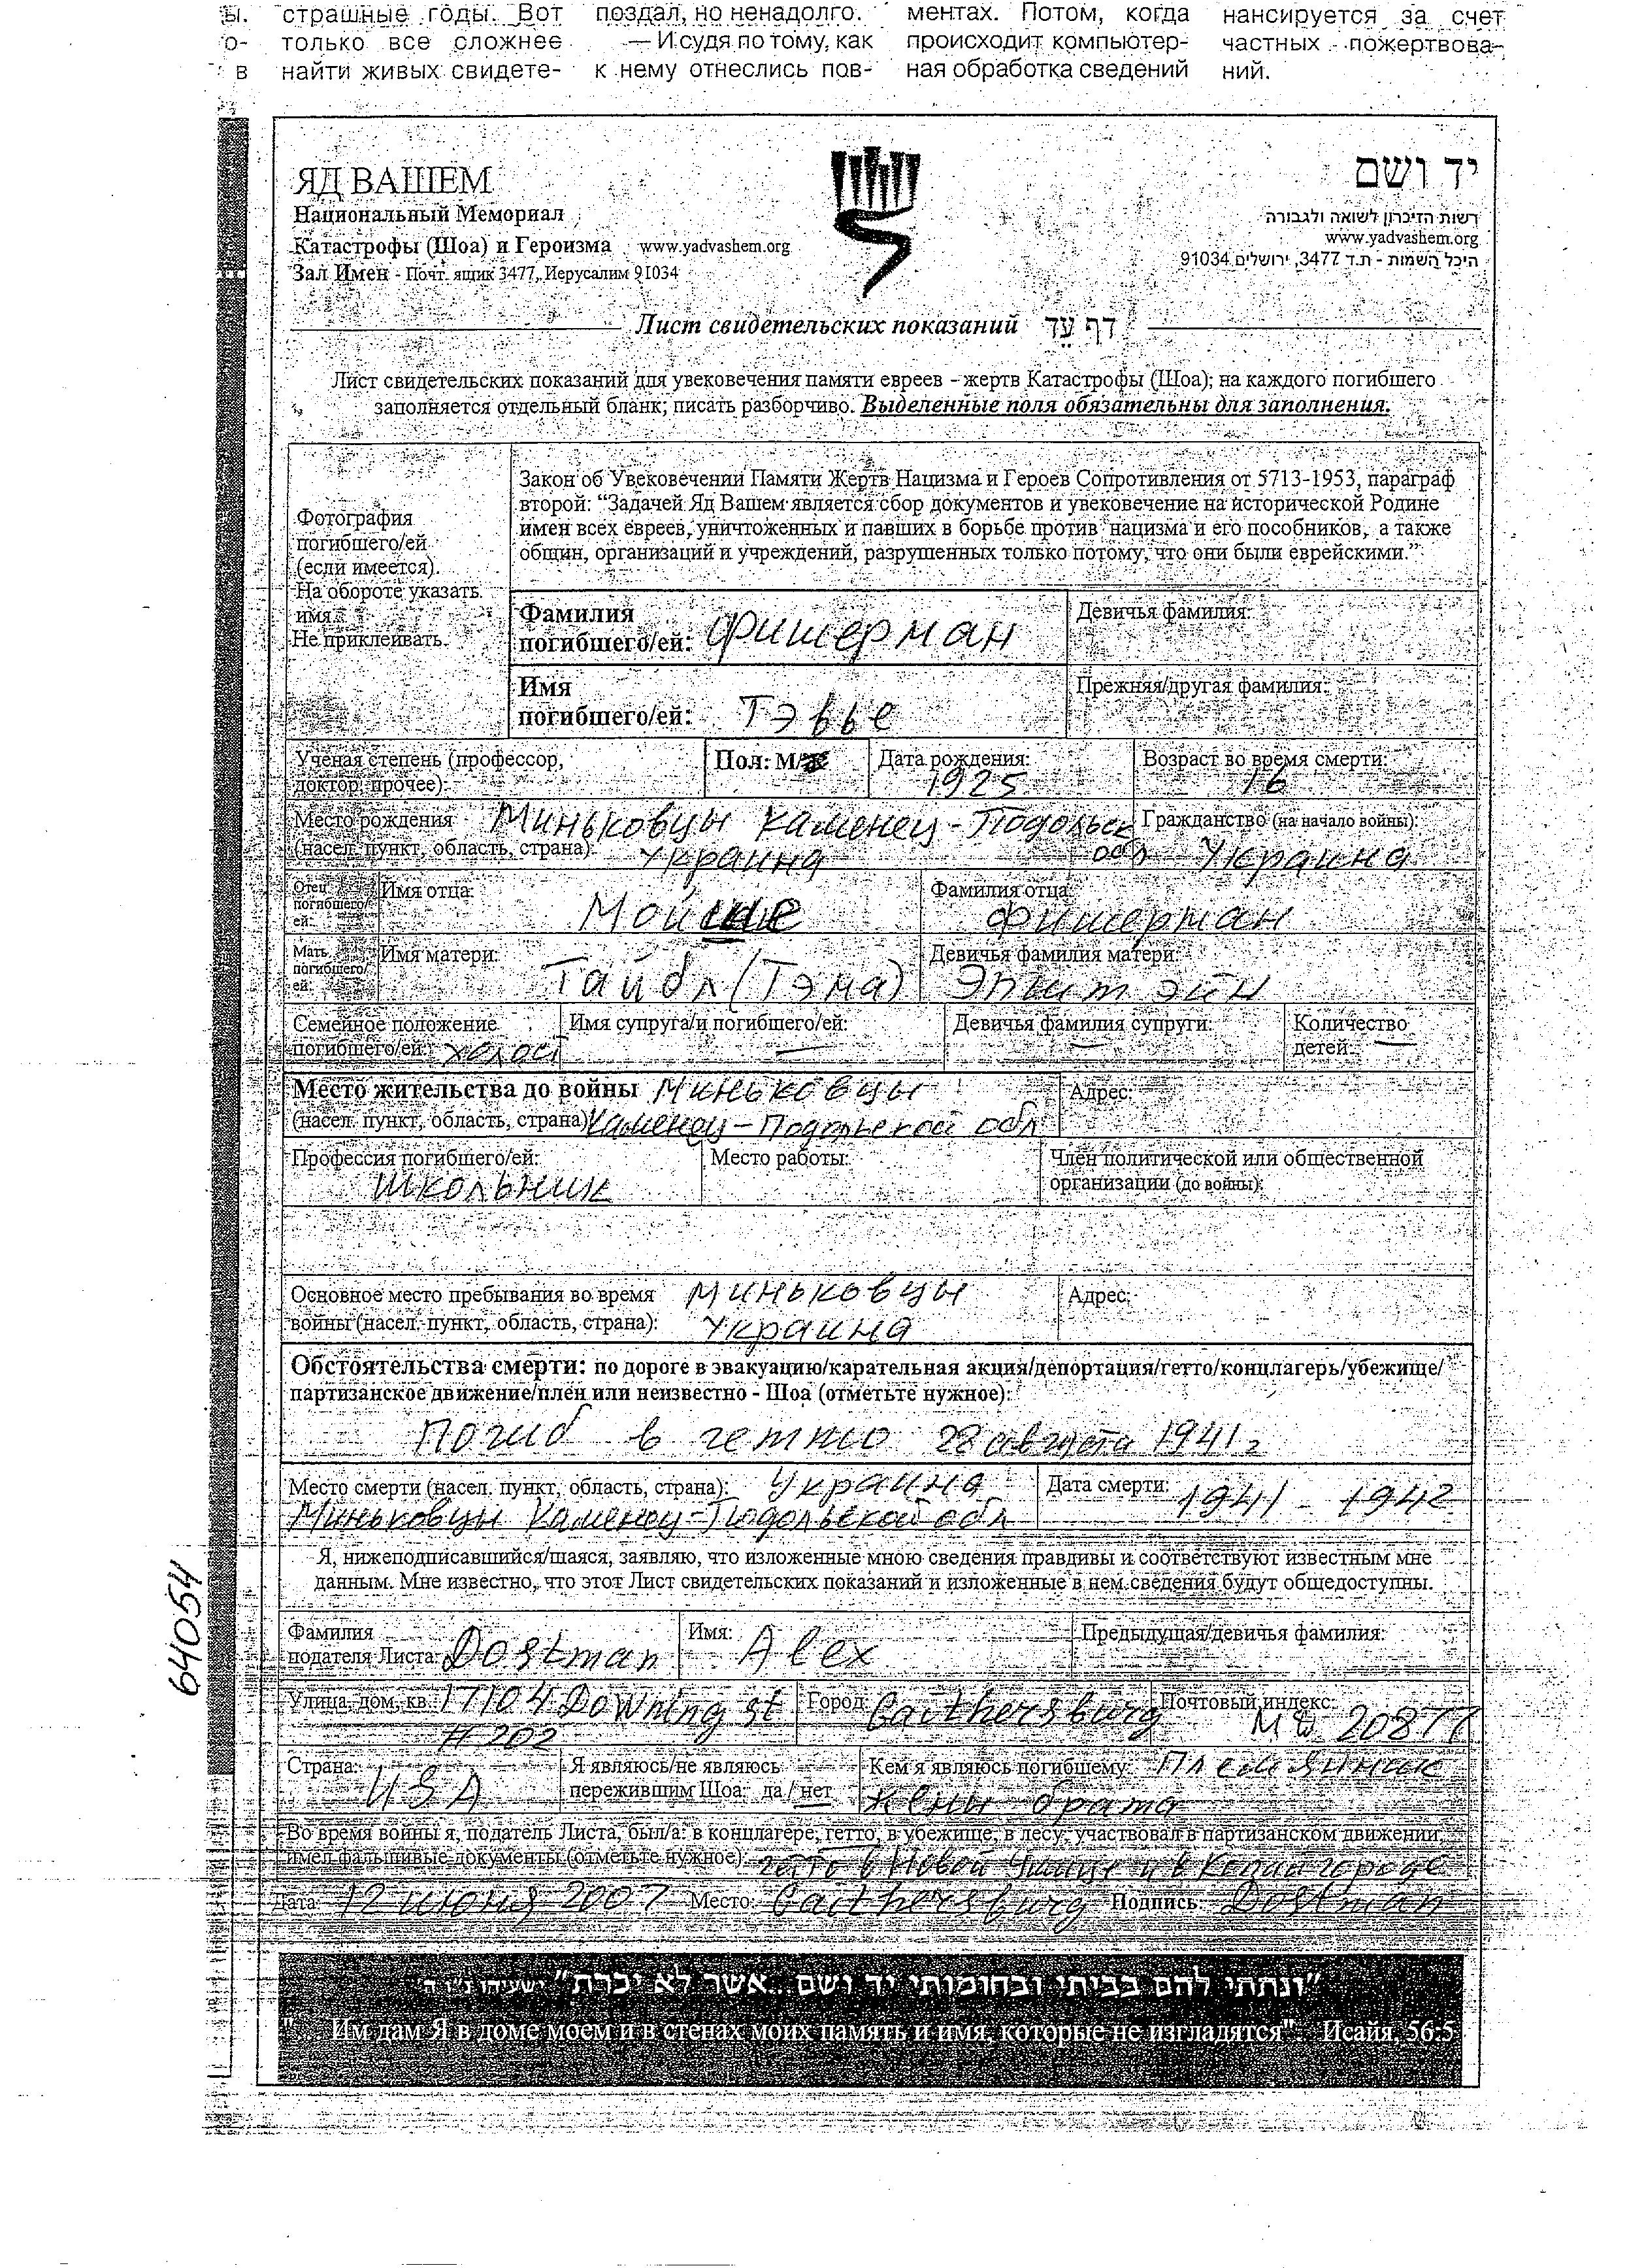 ы. страшные годы. Вот поздал, но ненадолго. ментах. Потом, когда нансируется за счет
о- только все сложнее — И судя по тому, как происходит компьютер- частных пожертвова-
в найти живых свидете- к нему отнеслись пов- ная обработка сведений ний.
ЯД ВАШЕМ
Национальный Мемориал
Катастрофы (Шоа) и Героизма www.yadvashem.org
Зал Имен - Почт. ящик 3477, Иерусалим 91034
יד ושם
רשות הזיכרון לשואה ולגבורה
www.yadvashem.org
היכל השמות - ת.ד 3477, ירושלים 91034
Лист свидетельских показаний דף עד
Лист свидетельских показаний для увековечения памяти евреев – жертв Катастрофы (Шоа); на каждого погибшего
заполняется отдельный бланк; писать разборчиво. Выделенные поля обязательны для заполнения.
Фотография
погибшего/ей
(если имеется).
На обороте указать
имя.
Не приклеивать.
Закон об Увековечении Памяти Жертв Нацизма и Героев Сопротивления от 5713-1953, параграф
второй: “Задачей Яд Вашем является сбор документов и увековечение на исторической Родине
имен всех евреев, уничтоженных и павших в борьбе против нацизма и его пособников, а также
общин, организаций и учреждений, разрушенных только потому, что они были еврейскими.”
Фамилия
погибшего/ей: Фишерман
Девичья фамилия:
Имя
погибшего/ей: Тэвье
Прежняя/другая фамилия:
Ученая степень (профессор,
доктор, прочее):
Пол: М/Ж
Дата рождения:
1925
Возраст во время смерти:
16
Место рождения Миньковцы Каменец-Подольск
(насел. пункт, область, страна): Украина обл
Гражданство (на начало войны):
Украина
Отец
погибшего/
ей:
Имя отца:
Мойше
Фамилия отца:
Фишерман
Мать
погибшего/
ей:
Имя матери:
Тайбл (Тэма)
Девичья фамилия матери:
Эпштэйн
Семейное положение
погибшего/ей: холост
Имя супруга/и погибшего/ей:
—
Девичья фамилия супруги:
—
Количество
детей: —
Место жительства до войны Миньковцы
(насел. пункт, область, страна) Каменец-Подольской обл
Адрес:
Профессия погибшего/ей:
школьник
Место работы:
Член политической или общественной
организации (до войны):
Основное место пребывания во время Миньковцы
войны (насел. пункт, область, страна): Украина
Адрес:
Обстоятельства смерти: по дороге в эвакуацию/карательная акция/депортация/гетто/концлагерь/убежище/
партизанское движение/плен или неизвестно - Шоа (отметьте нужное):
Погиб в гетто 28 августа 1941г
Место смерти (насел. пункт, область, страна): Украина
Миньковцы Каменец-Подольской обл
Дата смерти: 1941 - 1942
Я, нижеподписавшийся/шаяся, заявляю, что изложенные мною сведения правдивы и соответствуют известным мне
данным. Мне известно, что этот Лист свидетельских показаний и изложенные в нем сведения будут общедоступны.
64054
Фамилия
подателя Листа: Dostman
Имя: Alex
Предыдущая/девичья фамилия:
Улица, дом, кв. 17104 Downing st
# 202
Город: Gaithersburg
Почтовый индекс:
MD 20877
Страна:
USA
Я являюсь/не являюсь
пережившим Шоа: да / нет
Кем я являюсь погибшему: Племянник
жены брата
Во время войны я, податель Листа, был/а: в концлагере, гетто, в убежище, в лесу, участвовал в партизанском движении,
имел фальшивые документы (отметьте нужное): гетто в Новой Ушице и в Копайгороде
Дата: 12 июня 2007 Место: Gaithersburg Подпись: Dostman
"ונתתי להם בביתי ובחומותי יד ושם ..אשר לא יכרת" ישעיהו נ"ו ה'
"Им дам Я в доме моем и в стенах моих память и имя, которые не изгладятся" Исайя, 56:5